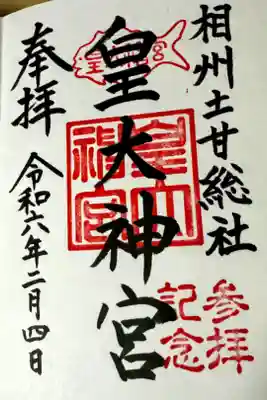 相州土甘総社
皇大神宮
参拝
記念
奉拝
令和六年二月四日